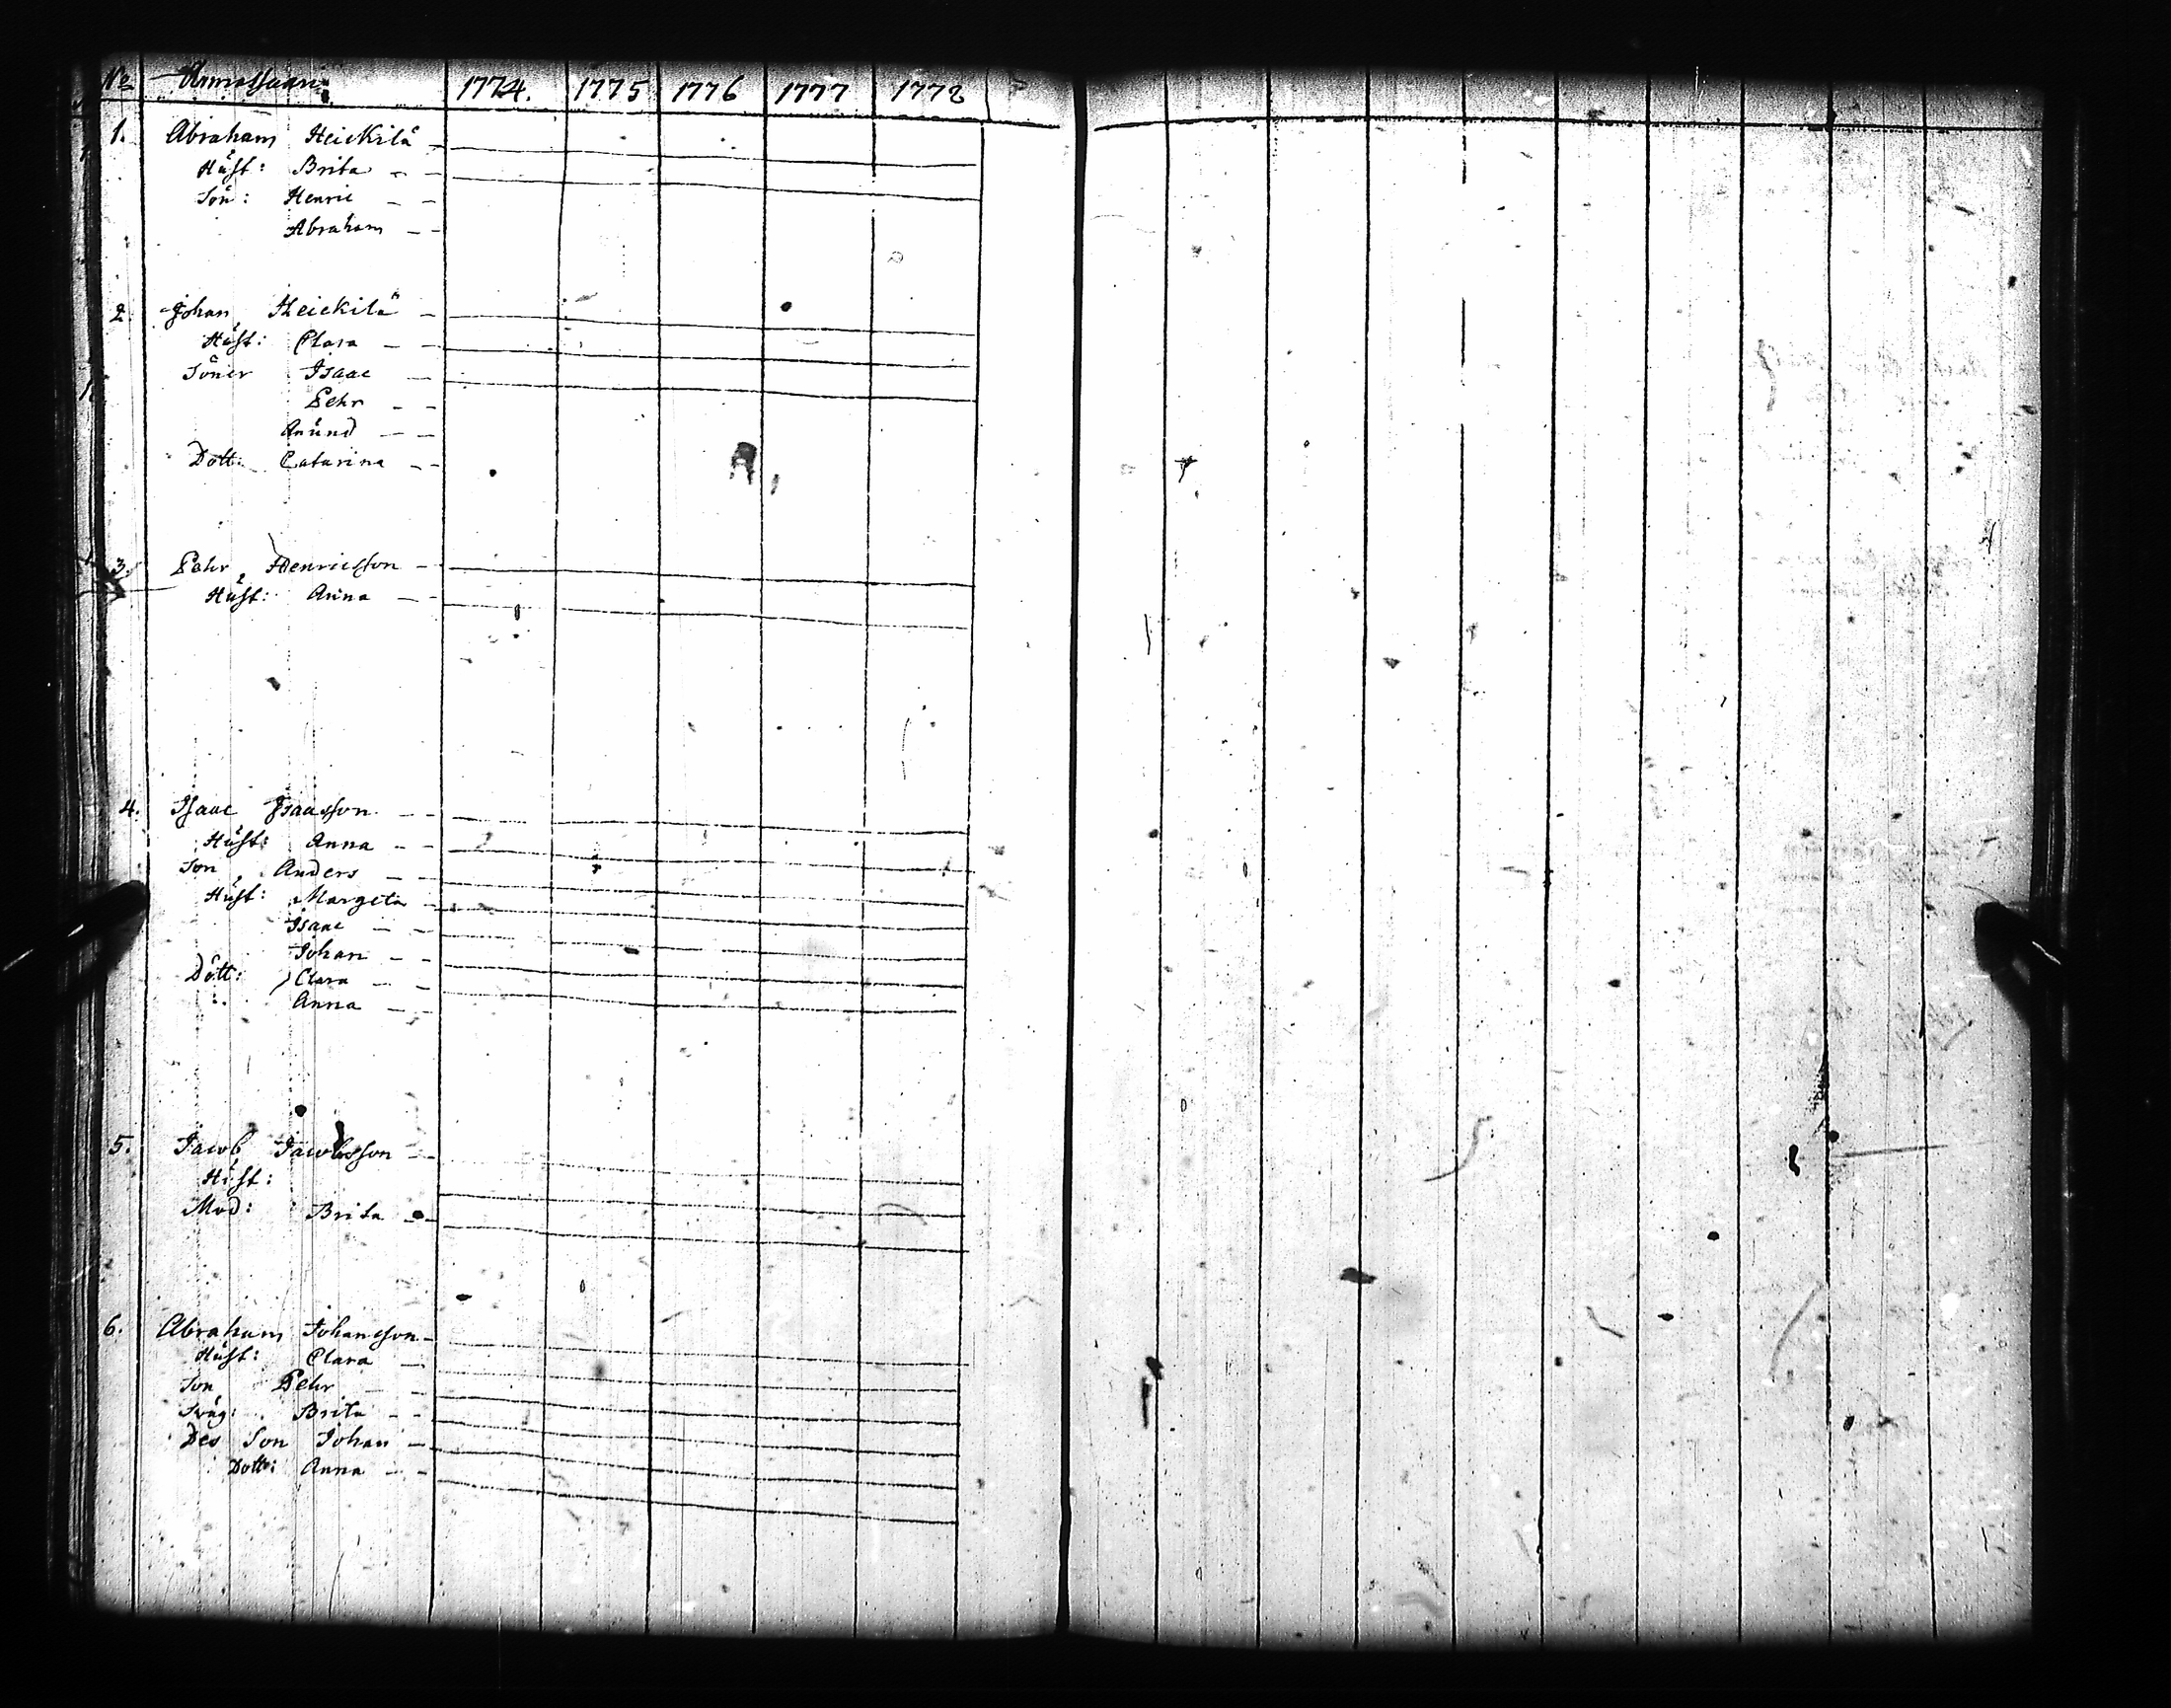 No 1774. 1775 1776 1777 1778
1. Abraham Heickilä
Hust: Brita
Son: Henric
Abraham
2. Johan Heickilä
Hust: Clara
Söner Isaac
Pehr
Anund
Dott: Catarina
3. Pehr Henricsson
Hust: Anna
4. Isaac Isaacsson
Hust: Anna
Son Anders
Hust: Margeta
Isaac
Johan
Dött: Clara
Anna
5. Jacob Jacobsson
Hust:
Mod: Brita
6. Abraham Johansson
Hust: Clara
Son Pehr
Swäg: Brita
Des Son Johan
Dott: Anna